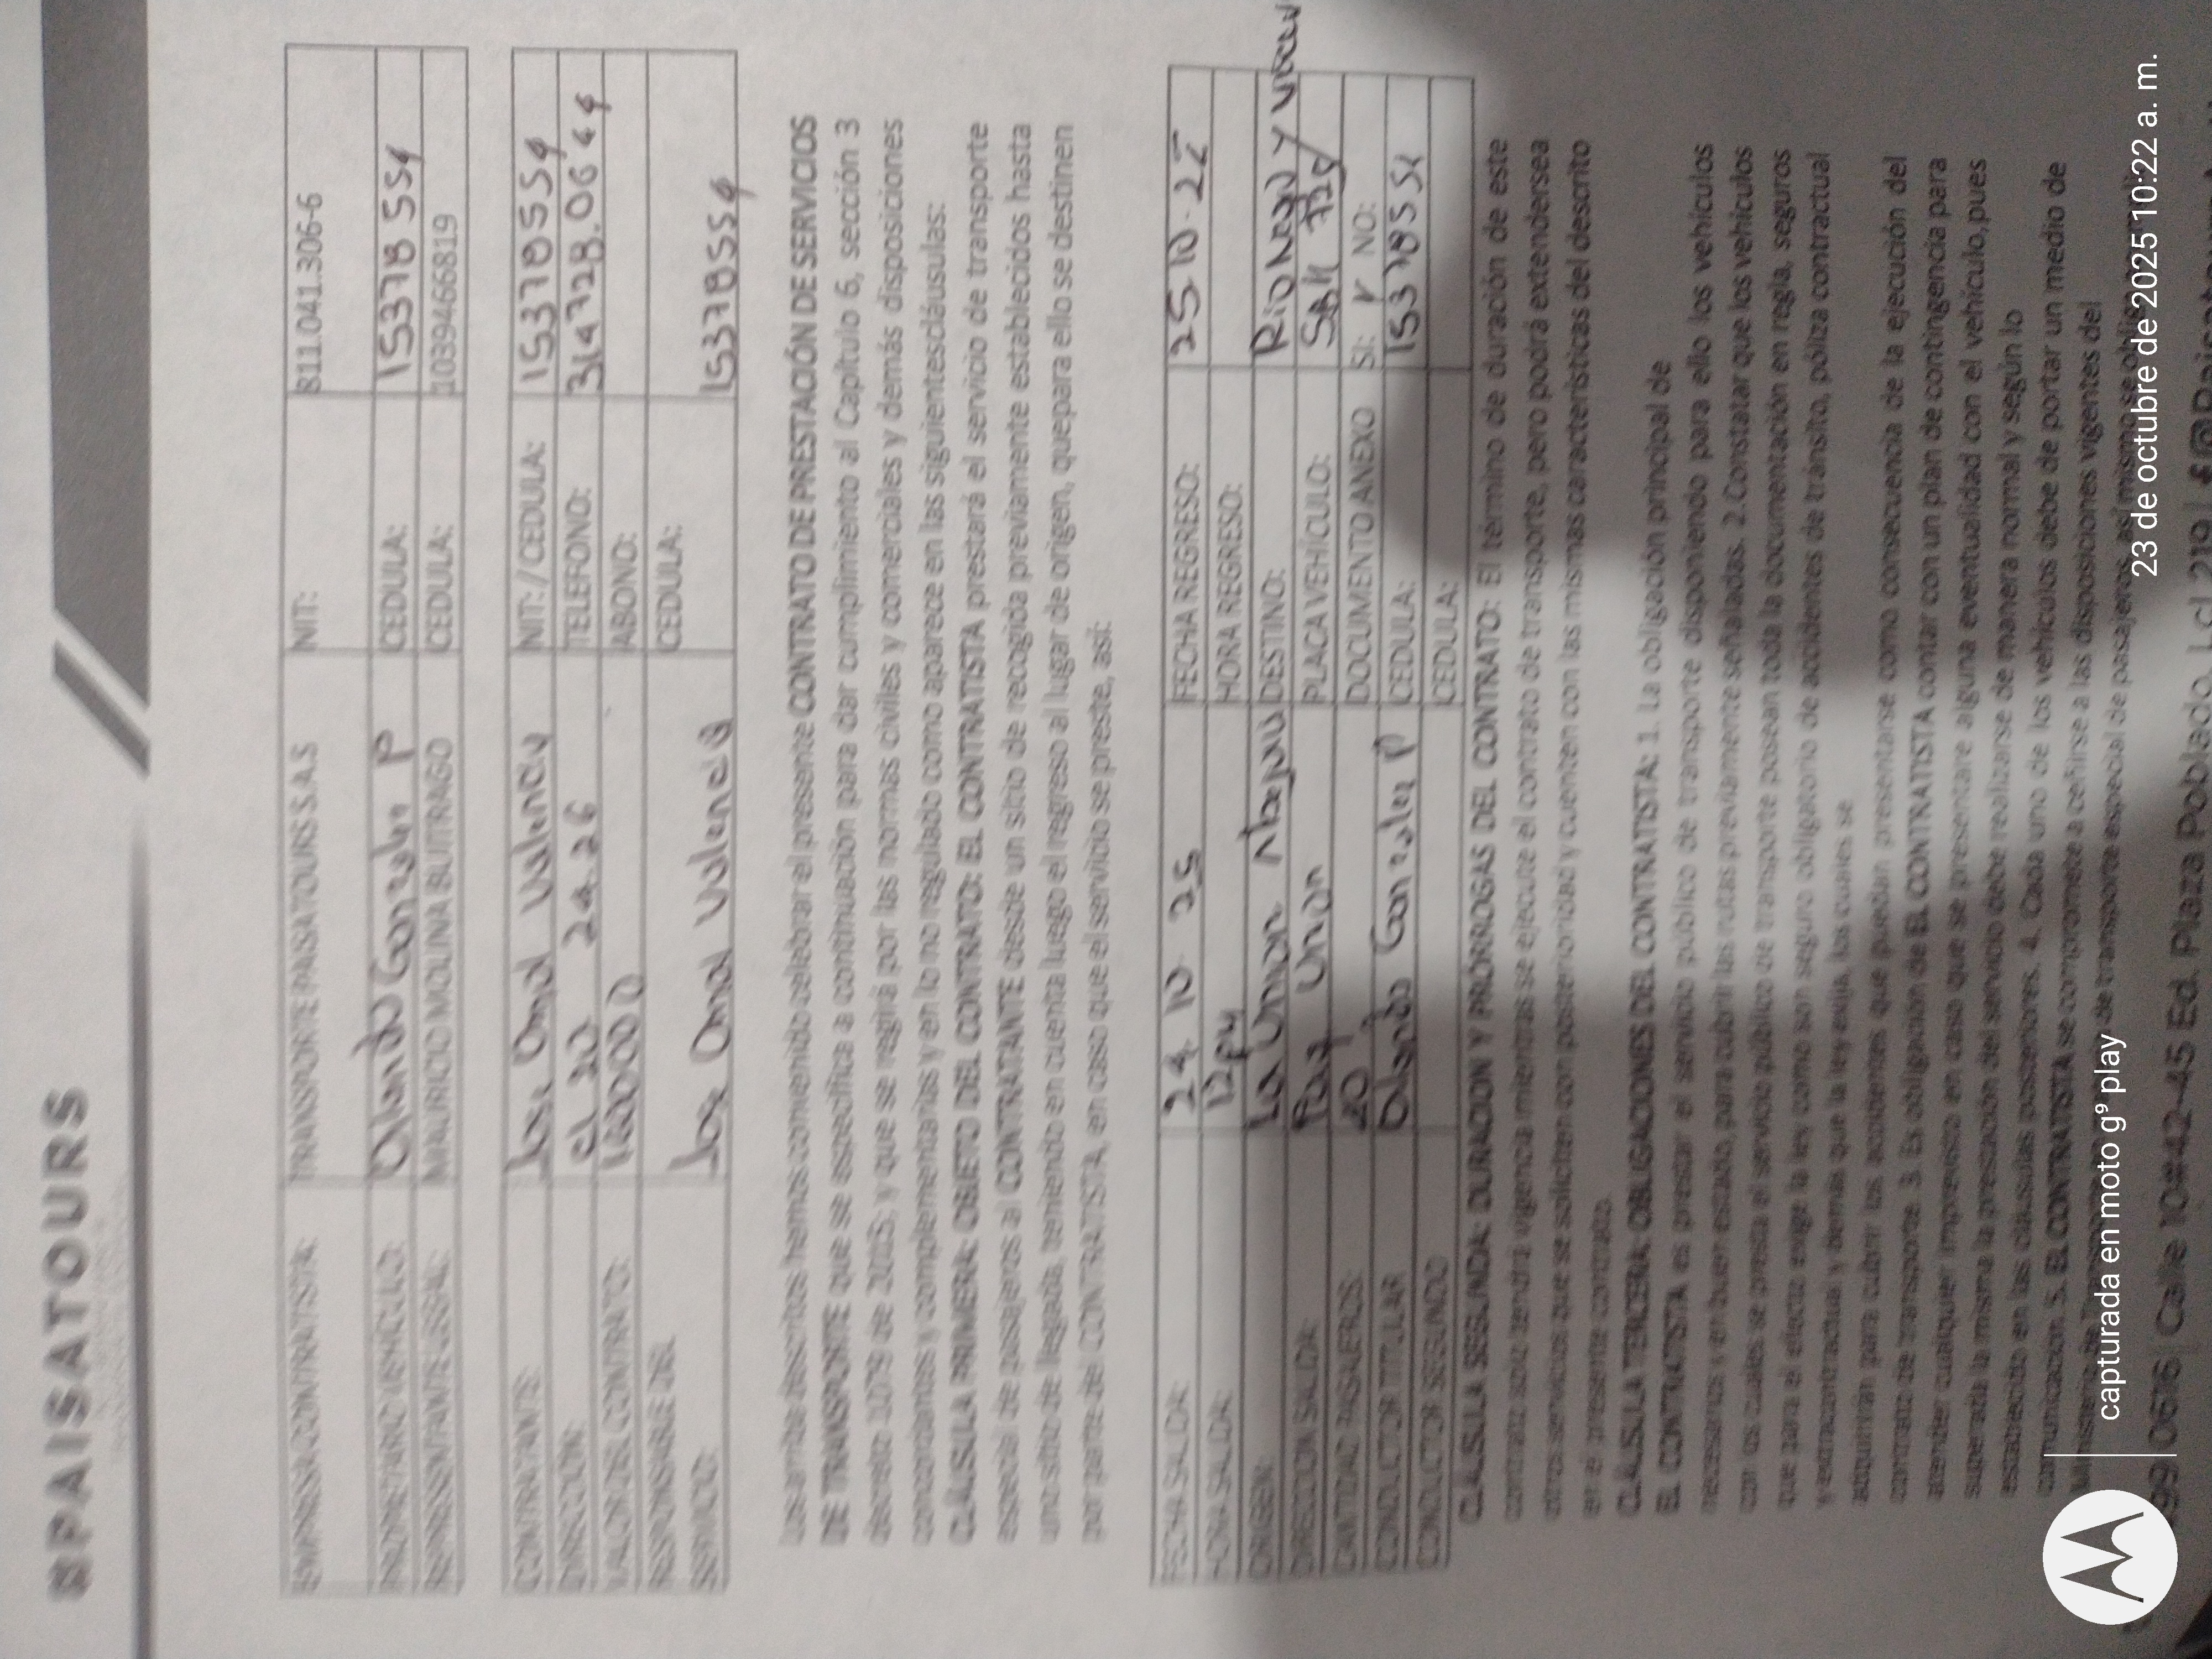 PAISATOURS
EMPRESA CONTRATISTA: TRANSPORTE PAISATOURS S.A.S NIT: 811.041.306-6
PROPIETARIO VEHICULO: Orlando Gonzalez P CEDULA: 15378554
REPRESENTANTE LEGAL: MAURICIO MOLINA BUITRAGO CEDULA: 1039466819
CONTRATANTE: Jose Omal Valencia NIT: / CEDULA: 15378554
DIRECCIÓN: cl 20 24.26 TELEFONO: 314728.0644
VALOR DEL CONTRATO: ABONO:
RESPONSABLE DEL CEDULA:
SERVICIO: Jose Omal Valencia 15378554
Los arriba descritos hemos convenido celebrar el presente CONTRATO DE PRESTACIÓN DE SERVICIOS
DE TRANSPORTE que se especifica a continuación para dar cumplimiento al Capítulo 6, sección 3
decreto 1079 de 2015; y que se regirá por las normas civiles y comerciales y demás disposiciones
concordantes y complementarias y en lo no regulado como aparece en las siguientescláusulas:
CLÁUSULA PRIMERA: OBJETO DEL CONTRATO: EL CONTRATISTA prestará el servicio de transporte
especial de pasajeros al CONTRATANTE desde un sitio de recogida previamente establecidos hasta
uno sitio de llegada, teniendo en cuenta luego el regreso al lugar de origen, quepara ello se destinen
por parte del CONTRATISTA, en caso que el servicio se preste, así:
FECHA SALIDA: 24 10 25 FECHA REGRESO: 25.10.25
HORA SALIDA: 12pm HORA REGRESO:
ORIGEN: La Union DESTINO: Rionegro y
DIRECCION SALIDA: Union PLACA VEHÍCULO:
CANTIDAD PASAJEROS: 20 DOCUMENTO ANEXO SI: NO:
CONDUCTOR TITULAR Orlando Gonzalez P CEDULA:
CONDUCTOR SEGUNDO CEDULA:
CLÁUSULA SEGUNDA: DURACION Y PRÓRROGAS DEL CONTRATO: El término de duración de este
contrato solo tendrá vigencia mientras se ejecute el contrato de transporte, pero podrá extendersea
otros servicios que se soliciten con posterioridad y cuenten con las mismas características del descrito
en el presente contrato.
CLÁUSULA TERCERA: OBLIGACIONES DEL CONTRATISTA: 1. La obligación principal de
EL CONTRATISTA es prestar el servicio público de transporte disponiendo para ello los vehículos
necesarios y en buen estado, para cubrir las rutas previamente señaladas. 2.Constatar que los vehículos
con los cuales se presta el servicio público de transporte posean toda la documentación en regla, seguros
que para el efecto exige la ley como son seguro obligatorio de accidentes de tránsito, póliza contractual
y extracontractual y demás que la ley exija, los cuales se
adquirirán para cubrir los accidentes que puedan presentarse como consecuencia de la ejecución del
contrato de transporte. 3. Es obligación de EL CONTRATISTA contar con un plan de contingencia para
atender cualquier imprevisto en caso que se presentare alguna eventualidad con el vehículo, pues
superada la misma la prestación del servicio debe realizarse de manera normal y según lo
establecido en las cláusulas posteriores. 4. Cada uno de los vehículos debe de portar un medio de
comunicación. 5. EL CONTRATISTA se compromete a ceñirse a las disposiciones vigentes del
Ministerio de de transporte especial de pasajeros, así mismo se
Calle 10#42-45 Ed. Plaza Poblado, Lcl 219 |
capturada en moto g⁹ play
23 de octubre de 2025 10:22 a. m.